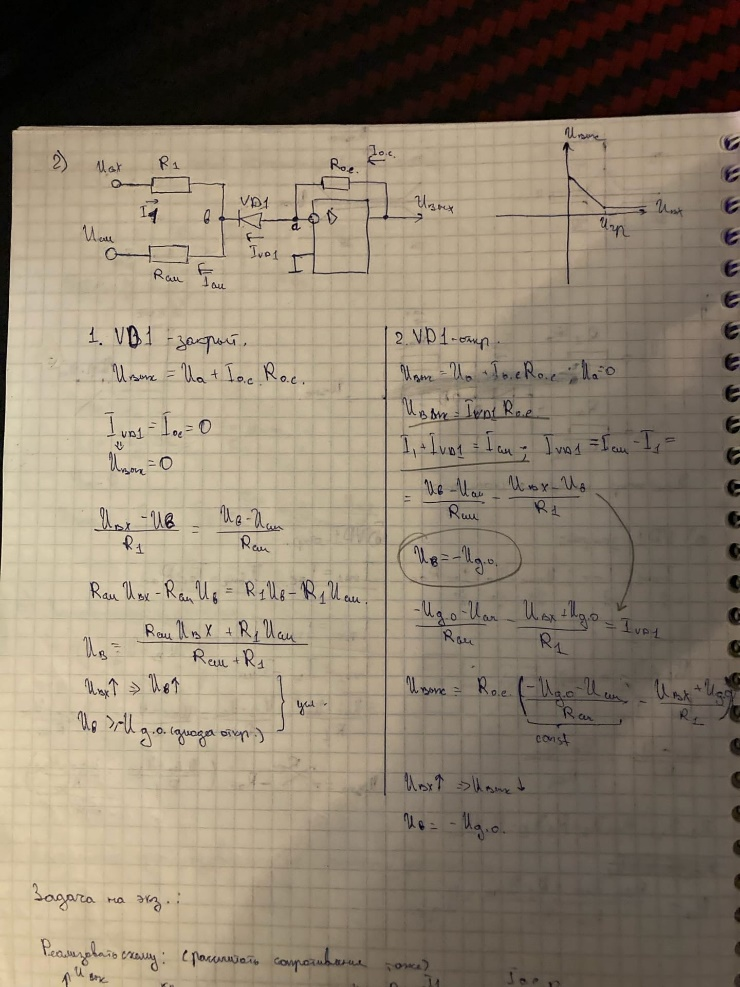 2)
Uвх R1
I1
Uсм
Rсм Iсм
в VD1 a
IVD1
Rо.с. Iо.с.
Uвых
Uвых
Uвх
Uгр
1. VD1 - закрыт.
Uвых = Uа + Iо.с. Rо.с.
IVD1 = Iос = 0
⇓
Uвых = 0
(Uвх - Uв)/R1 = (Uв - Uсм)/Rсм
Rсм Uвх - Rсм Uв = R1 Uв - R1 Uсм.
Uв = (Rсм Uвх + R1 Uсм)/(Rсм + R1)
Uвх↑ ⇒ Uв↑
Uв ≥ -Uд.о. (диода откр.)
} усл.
2. VD1 - откр.
Uвых = Uа + Iо.с Rо.с ; Uа = 0
Uвых = IVD1 Rо.с
I1 + IVD1 = Iсм ; IVD1 = Iсм - I1 =
= (Uв - Uсм)/Rсм - (Uвх - Uв)/R1
Uв = -Uд.о.
(-Uд.о - Uсм)/Rсм - (Uвх + Uд.о)/R1 = IVD1
Uвых = Rо.с. ((-Uд.о - Uсм)/Rсм - (Uвх + Uдо)/R1)
const
Uвх↑ ⇒ Uвых↓
Uв = -Uд.о.
Задача на экз.:
Реализовать схему: (рассчитать сопротивление тоже)
↑Uвых